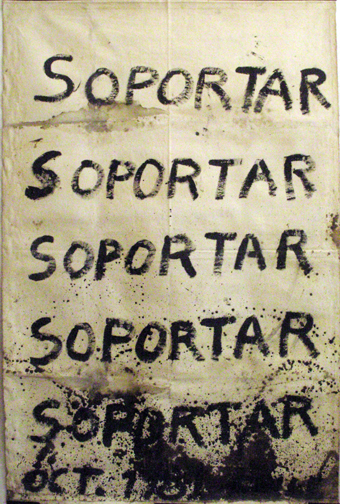 SOPORTAR
SOPORTAR
SOPORTAR
SOPORTAR
SOPORTAR
OCT.